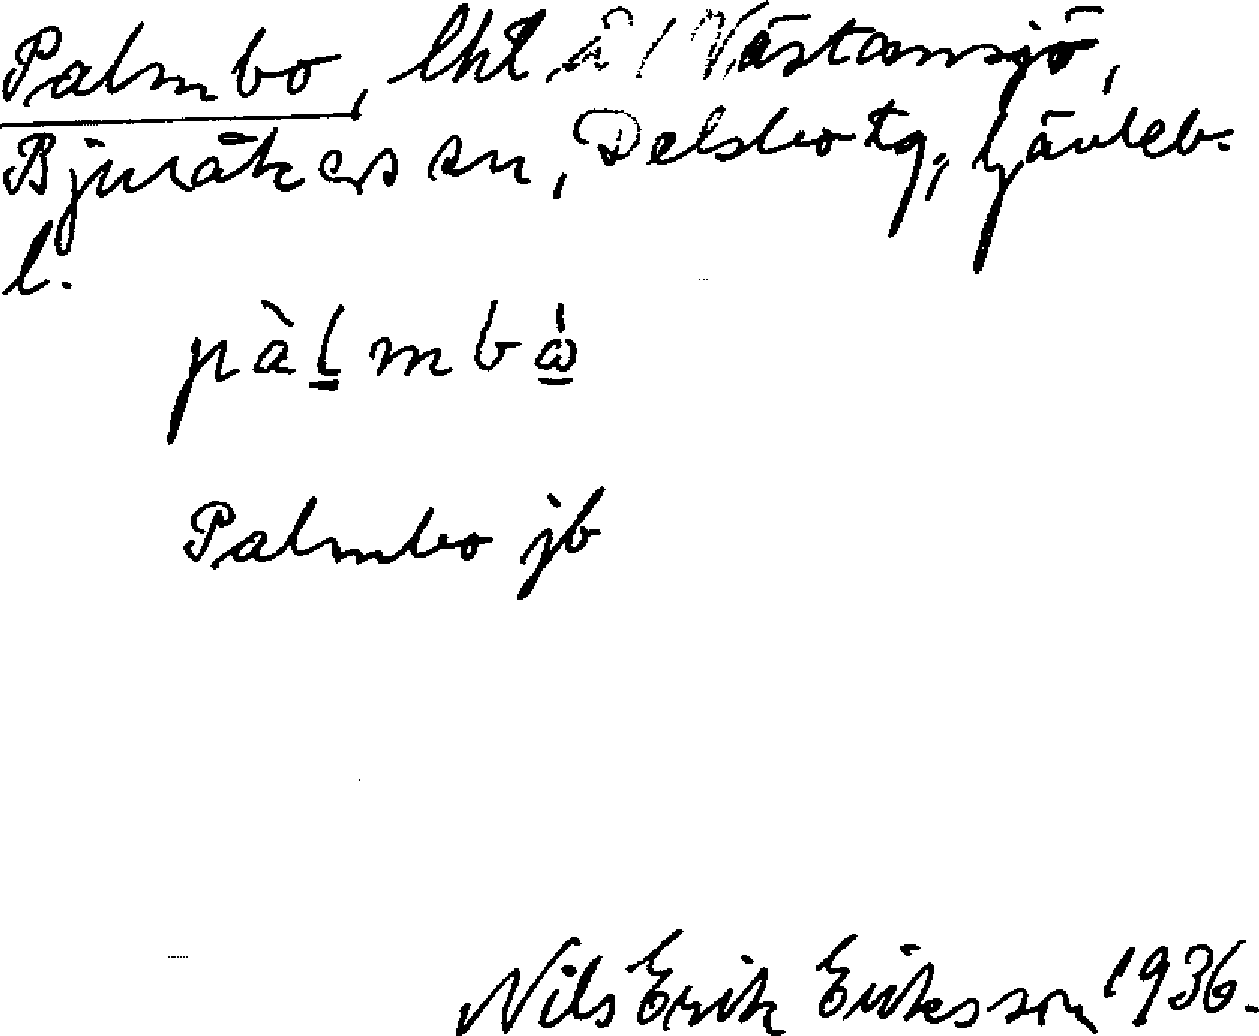 Palmbo, lht å 1 Västansjö,
Bjuråkers sn, Delsbo tg, Gävleb.
l.
pàl̲mbώ̲
Palmbo jb
Nils Erik Eriksson 1936.